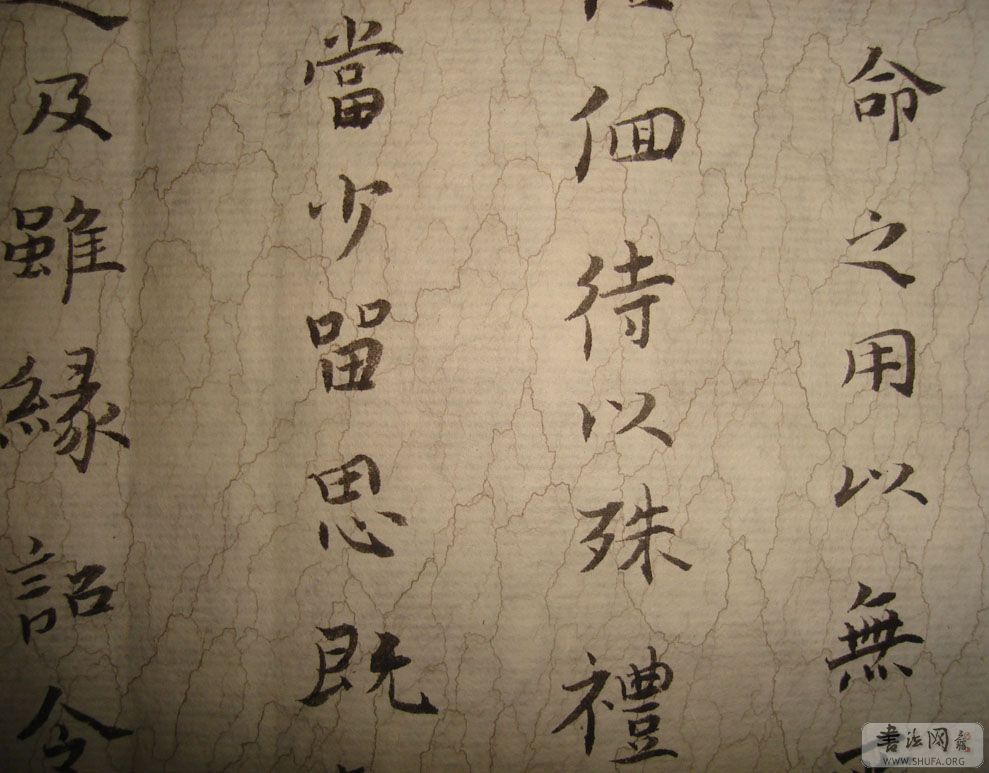 命之用以無
佪待以殊禮
當少留思既
及雖緣詔令
書法网
WWW.SHUFA.ORG